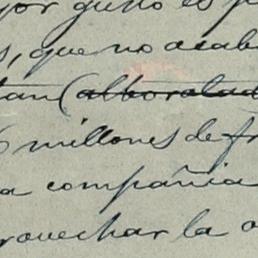 yor gusto es p
s, que no acab
tan (alborotad
6 millones de fr
a compañia
rovechar la o